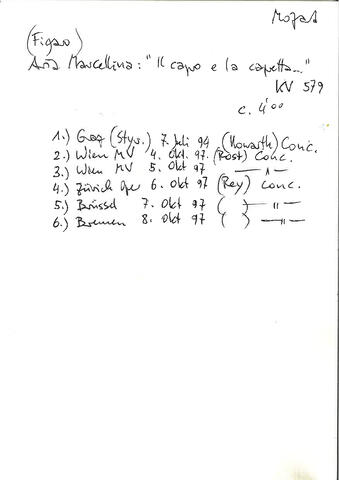 Mozart
(Figaro)
Aria Marcellina: "Il capro e la capretta..."
KV 579
c. 4'00
1.) Graz (Styr.) 7. Juli 94 (Howarth) Conc.
2.) Wien MV 4. Okt. 97. (Rost) Conc.
3.) Wien MV 5. Okt 97 — " —
4.) Zürich Oper 6. Okt 97 (Rey) Conc.
5.) Brüssel 7. Okt 97 ( ) — " —
6.) Bremen 8. Okt 97 ( ) — " —